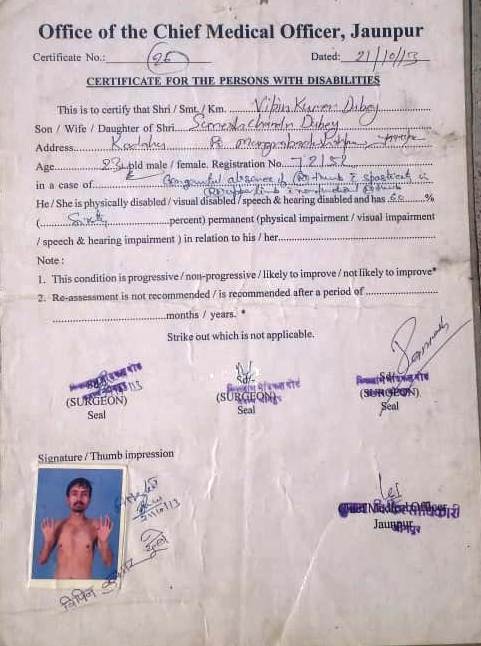 Office of the Chief Medical Officer, Jaunpur
Certificate No.: 26 Dated: 21/10/13
CERTIFICATE FOR THE PERSONS WITH DISABILITIES
This is to certify that Shri / Smt. / Km. Vipin Kumar Dubey
Son / Wife / Daughter of Shri Sureshchandra Dubey
Address
Age 23 old male / female. Registration No. 72152
in a case of Congenital absence of
He / She is physically disabled / visual disabled / speech & hearing disabled and has 60 %
(Sixty percent) permanent (physical impairment / visual impairment
/ speech & hearing impairment ) in relation to his / her
Note :
1. This condition is progressive / non-progressive / likely to improve / not likely to improve*
2. Re-assessment is not recommended / is recommended after a period of
months / years. *
Strike out which is not applicable.
Sd/- Sd/-
(SURGEON) (SURGEON) (SURGEON)
Seal Seal Seal
Signature / Thumb impression
21/10/13
Chief Medical Officer
Jaunpur
जौनपुर
विपिन कुमार दुबे